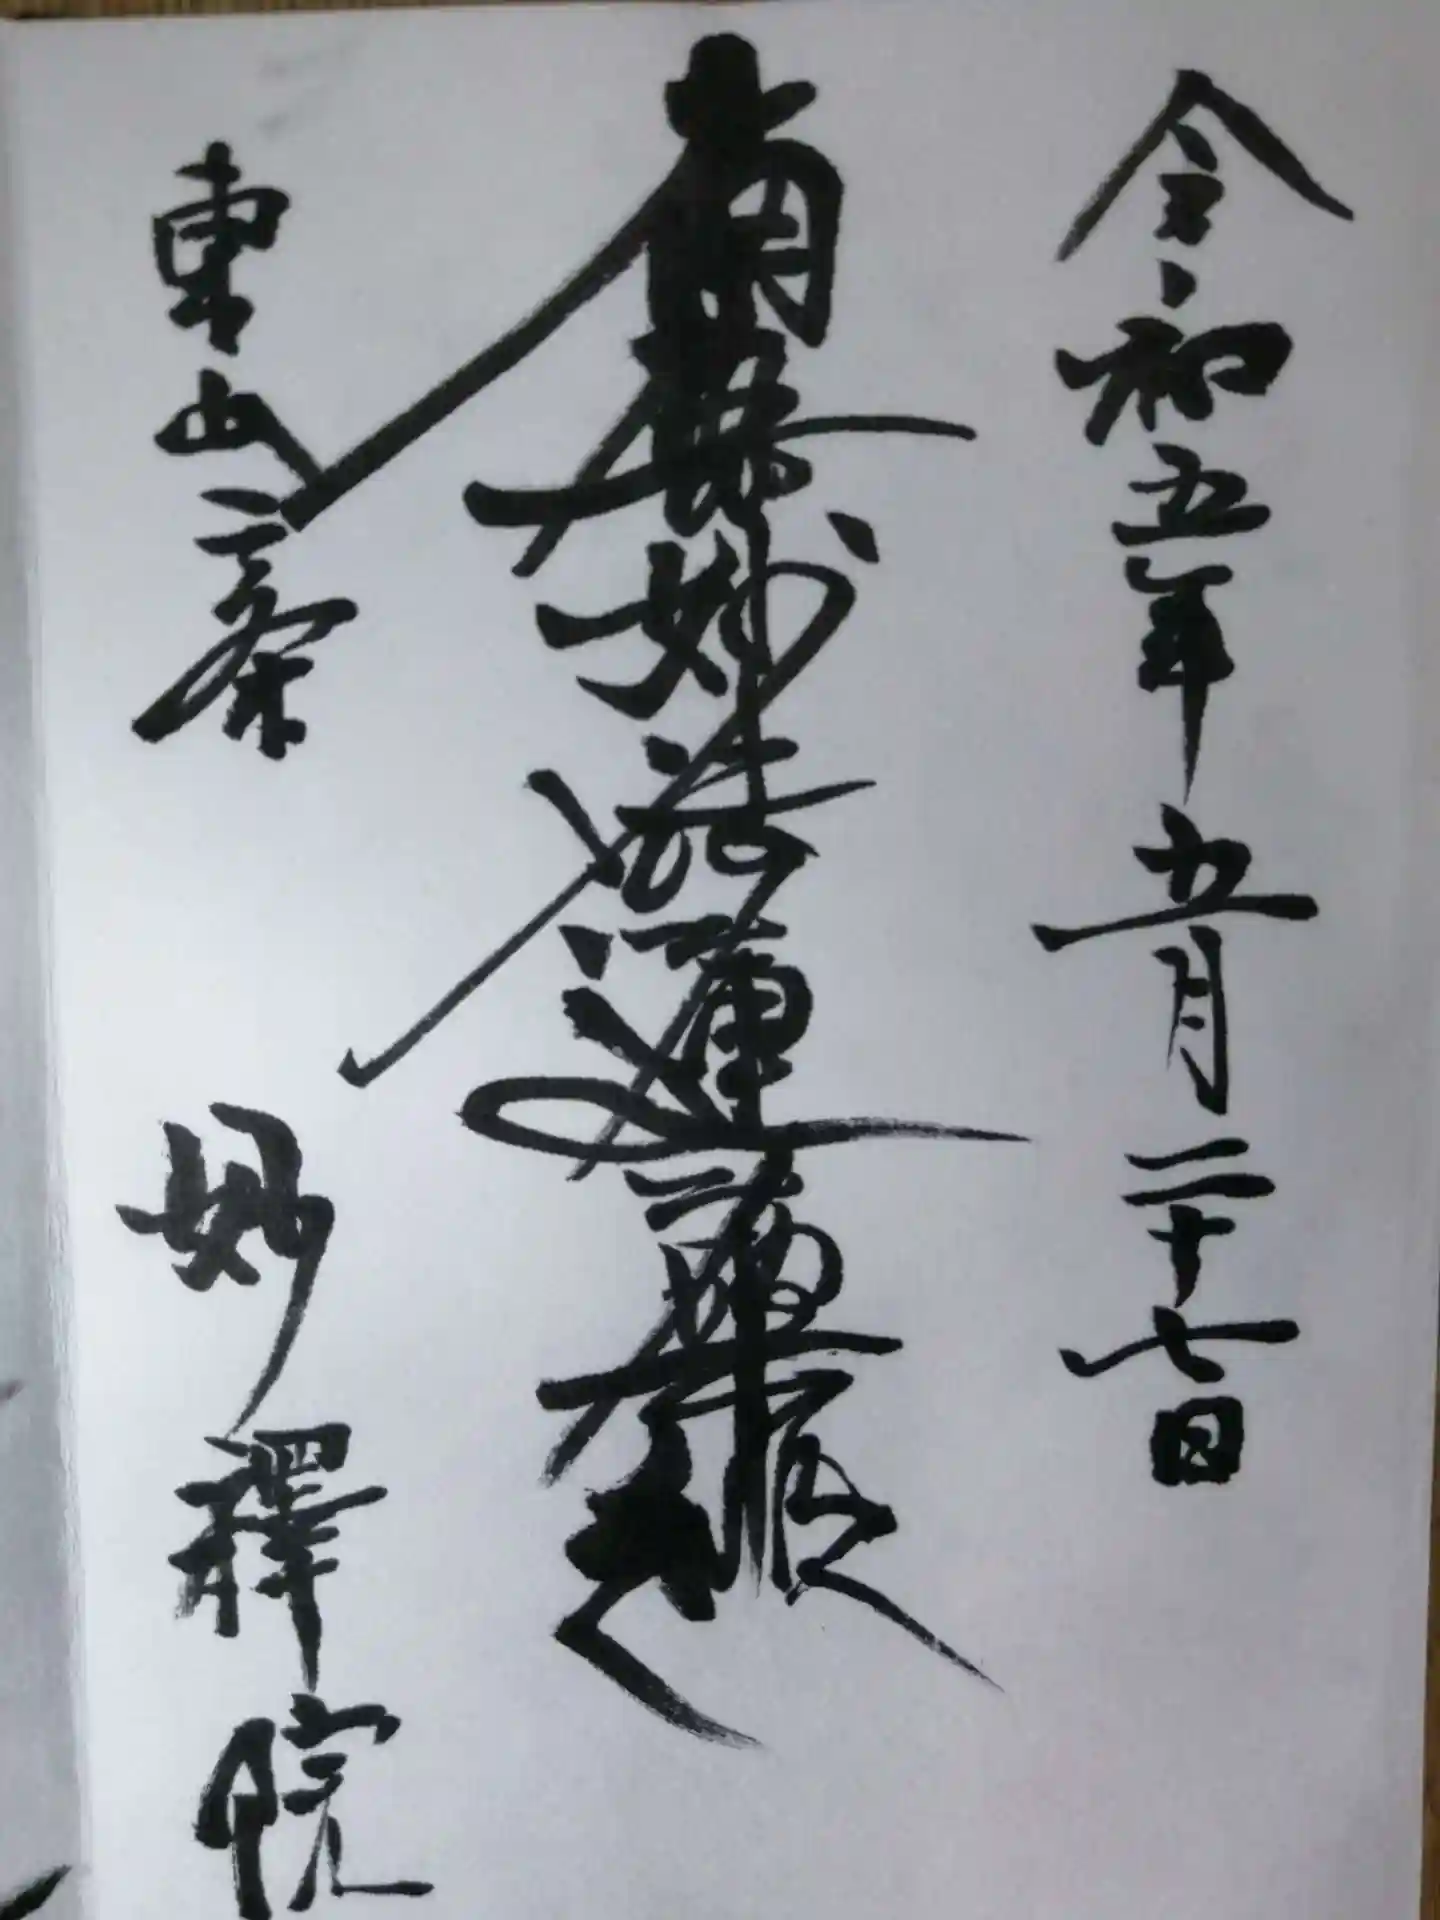 令和五年五月二十七日
南無妙法蓮華経
東山
妙釋院